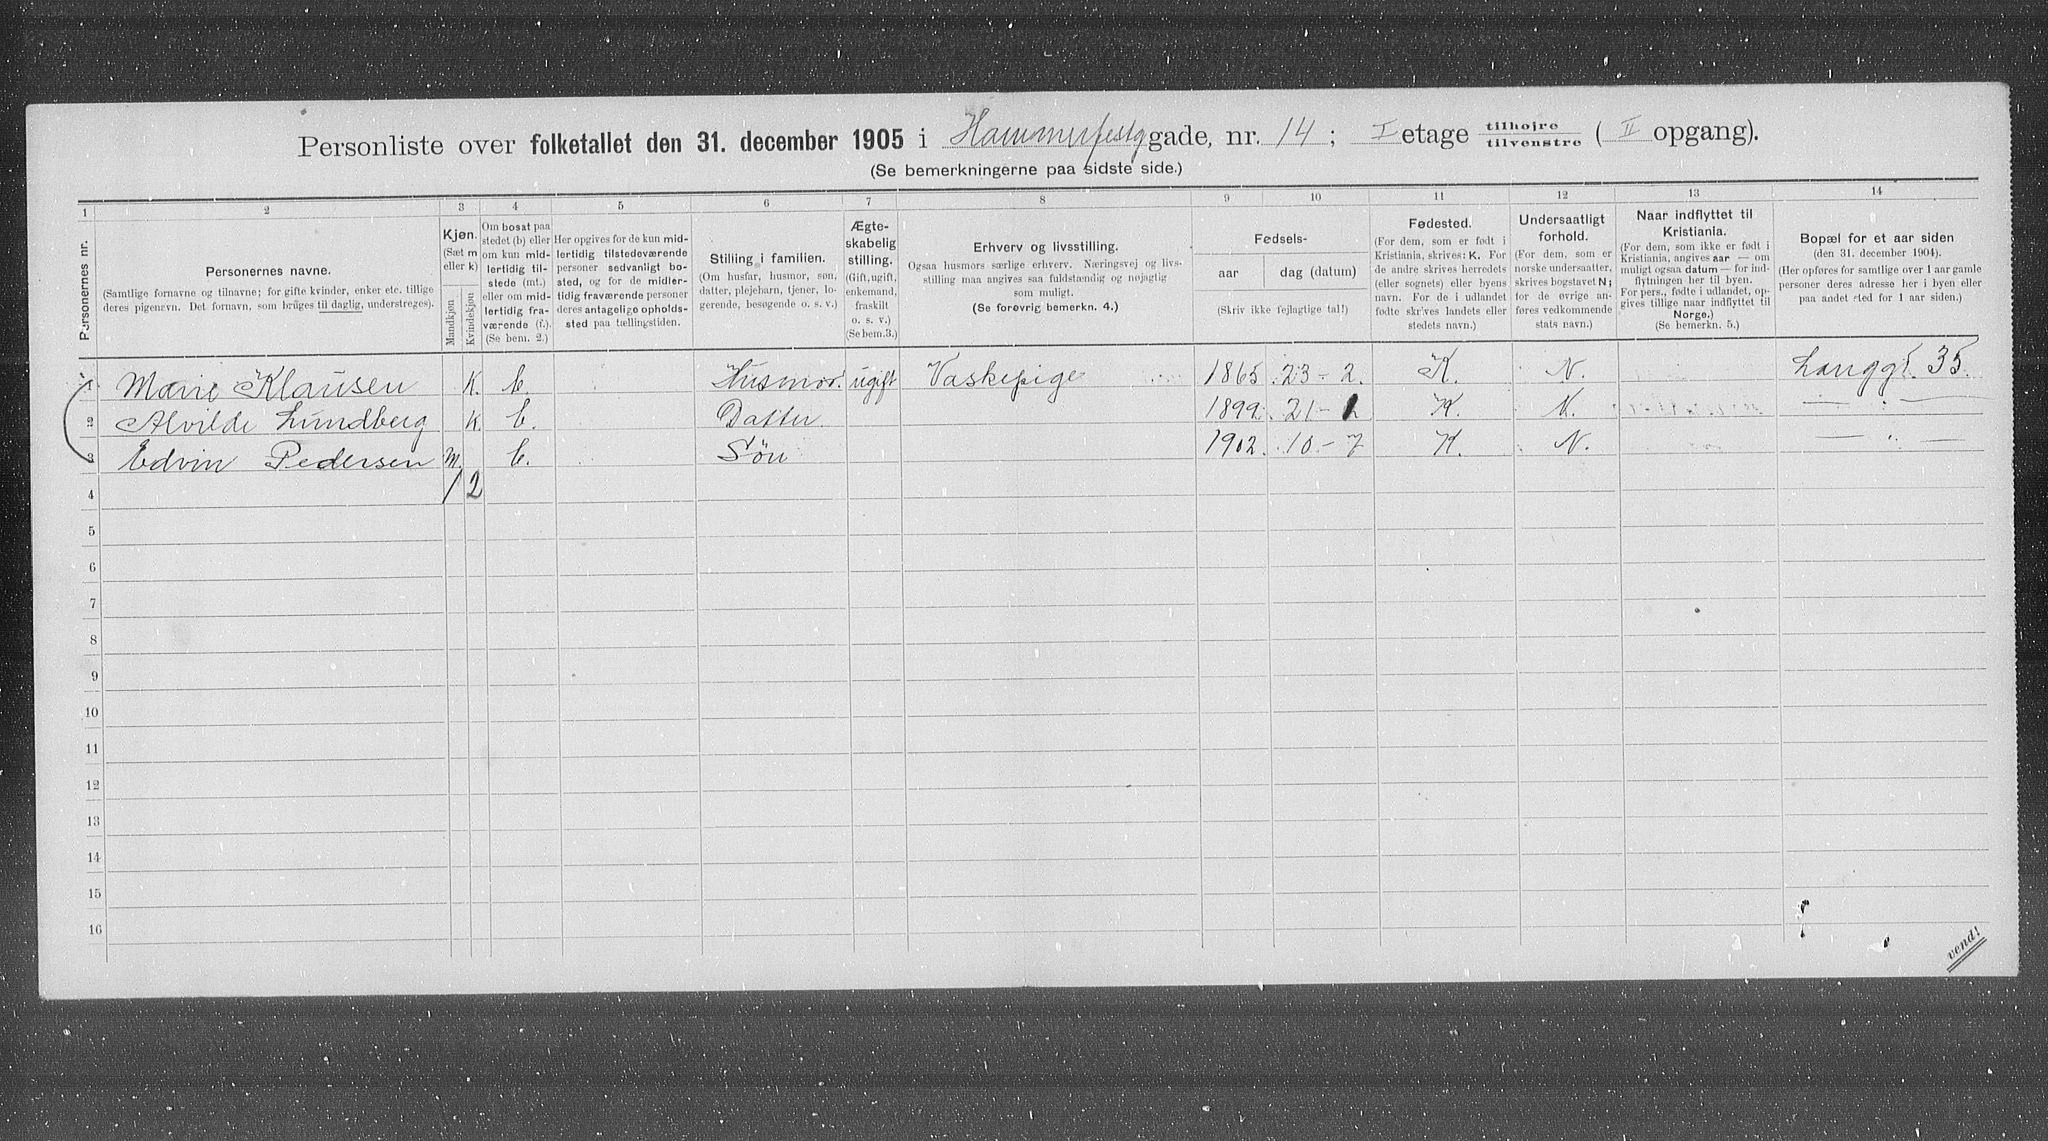 Personliste over folketallet den 31. december 1905 i Hammerfestggade, nr. 14 ; I etage tilhøjre / tilvenstre ( II opgang).
(Se bemerkningerne paa sidste side.)
1 2 3 4 5 6 7 8 9 10 11 12 13 14
Personernes nr.
Personernes navne.
(Samtlige fornavne og tilnavne; for gifte kvinder, enker etc. tillige
deres pigenevn. Det fornavn, som bruges til daglig, understreges).
Kjøn.
(Sæt m
eller k)
Mandkjøn
Kvindekjøn
Om bosat paa
stedet (b) eller
om kun mid-
lertidig til-
stede (mt.)
eller om mid-
lertidig fra-
værende (f.).
(Se bem. 2.)
Her opgives for de kun mid-
lertidig tilstedeværende
personer sedvanlig bo-
sted, og for de midler-
tidig fraværende personer
deres antagelige opholds-
sted paa tællingstiden.
Stilling i familien.
(Om husfar, husmor, søn,
datter, plejebarn, tjener, lo-
gerende, besøgende o. s. v.)
Ægte-
skabelig
stilling.
(Gift, ugift,
enkemand,
fraskilt
o. s. v.)
(Se bem.3.)
Erhverv og livsstilling.
Ogsaa husmors særlige erhverv. Næringsvej og livs-
stilling maa angives saa fuldstændig og nøjagtig
som muligt.
(Se forøvrig bemerkn. 4.)
Fødsels-
aar dag (datum)
(Skriv ikke fejlagtige tal!)
Fødested.
(For dem, som er født i
Kristiania, skrives: K. For
de andre skrives herredets
(eller sognets) eller byens
navn. For de i udlandet
fødte skrives landets eller
stedets navn.)
Undersaatligt
forhold.
(For dem, som er
norske undersaatter,
skrives bogstavet N;
for de øvrige an-
føres vedkommende
stats navn.)
Naar indflyttet til
Kristiania.
(For dem, som ikke er født i
Kristiania, angives aar — om
muligt ogsaa datum — for ind-
flytningen her til byen.
For pers., fødte i udlandet, op-
gives tillige naar indflyttet til
Norge.)
(Se bemerkn. 5.)
Bopæl for et aar siden
(den 31. december 1904).
(Her opføres for samtlige over 1 aar gamle
personer deres adresse her i byen eller
paa andet sted for 1 aar siden.)
1 Marie Klausen K. b. Husmor. ugift Vaskepige 1865 23 - 2. K. N. Langgt. 35.
2 Alvilde Lundberg K. b. Datter 1899 21 - K. N. — " —
3 Edvin Pedersen M. b. Søn 1902. 10 - 7 K. N. — " —
4 1 2
5
6
7
8
9
10
11
12
13
14
15
16
vend!